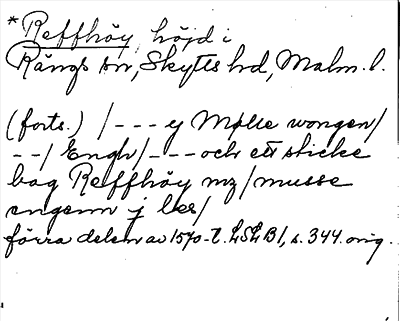 *Reffhöy, höjd i
Rängs sn, Skytts hd, Malm. l.
(forts.) /--- ej Mølle wongen/
--/ Engh/--- och ett sticke
bag Reffhöy mz/musse
engenn j les/
förra delen av 1570-t. LSLB1, s. 344. orig.